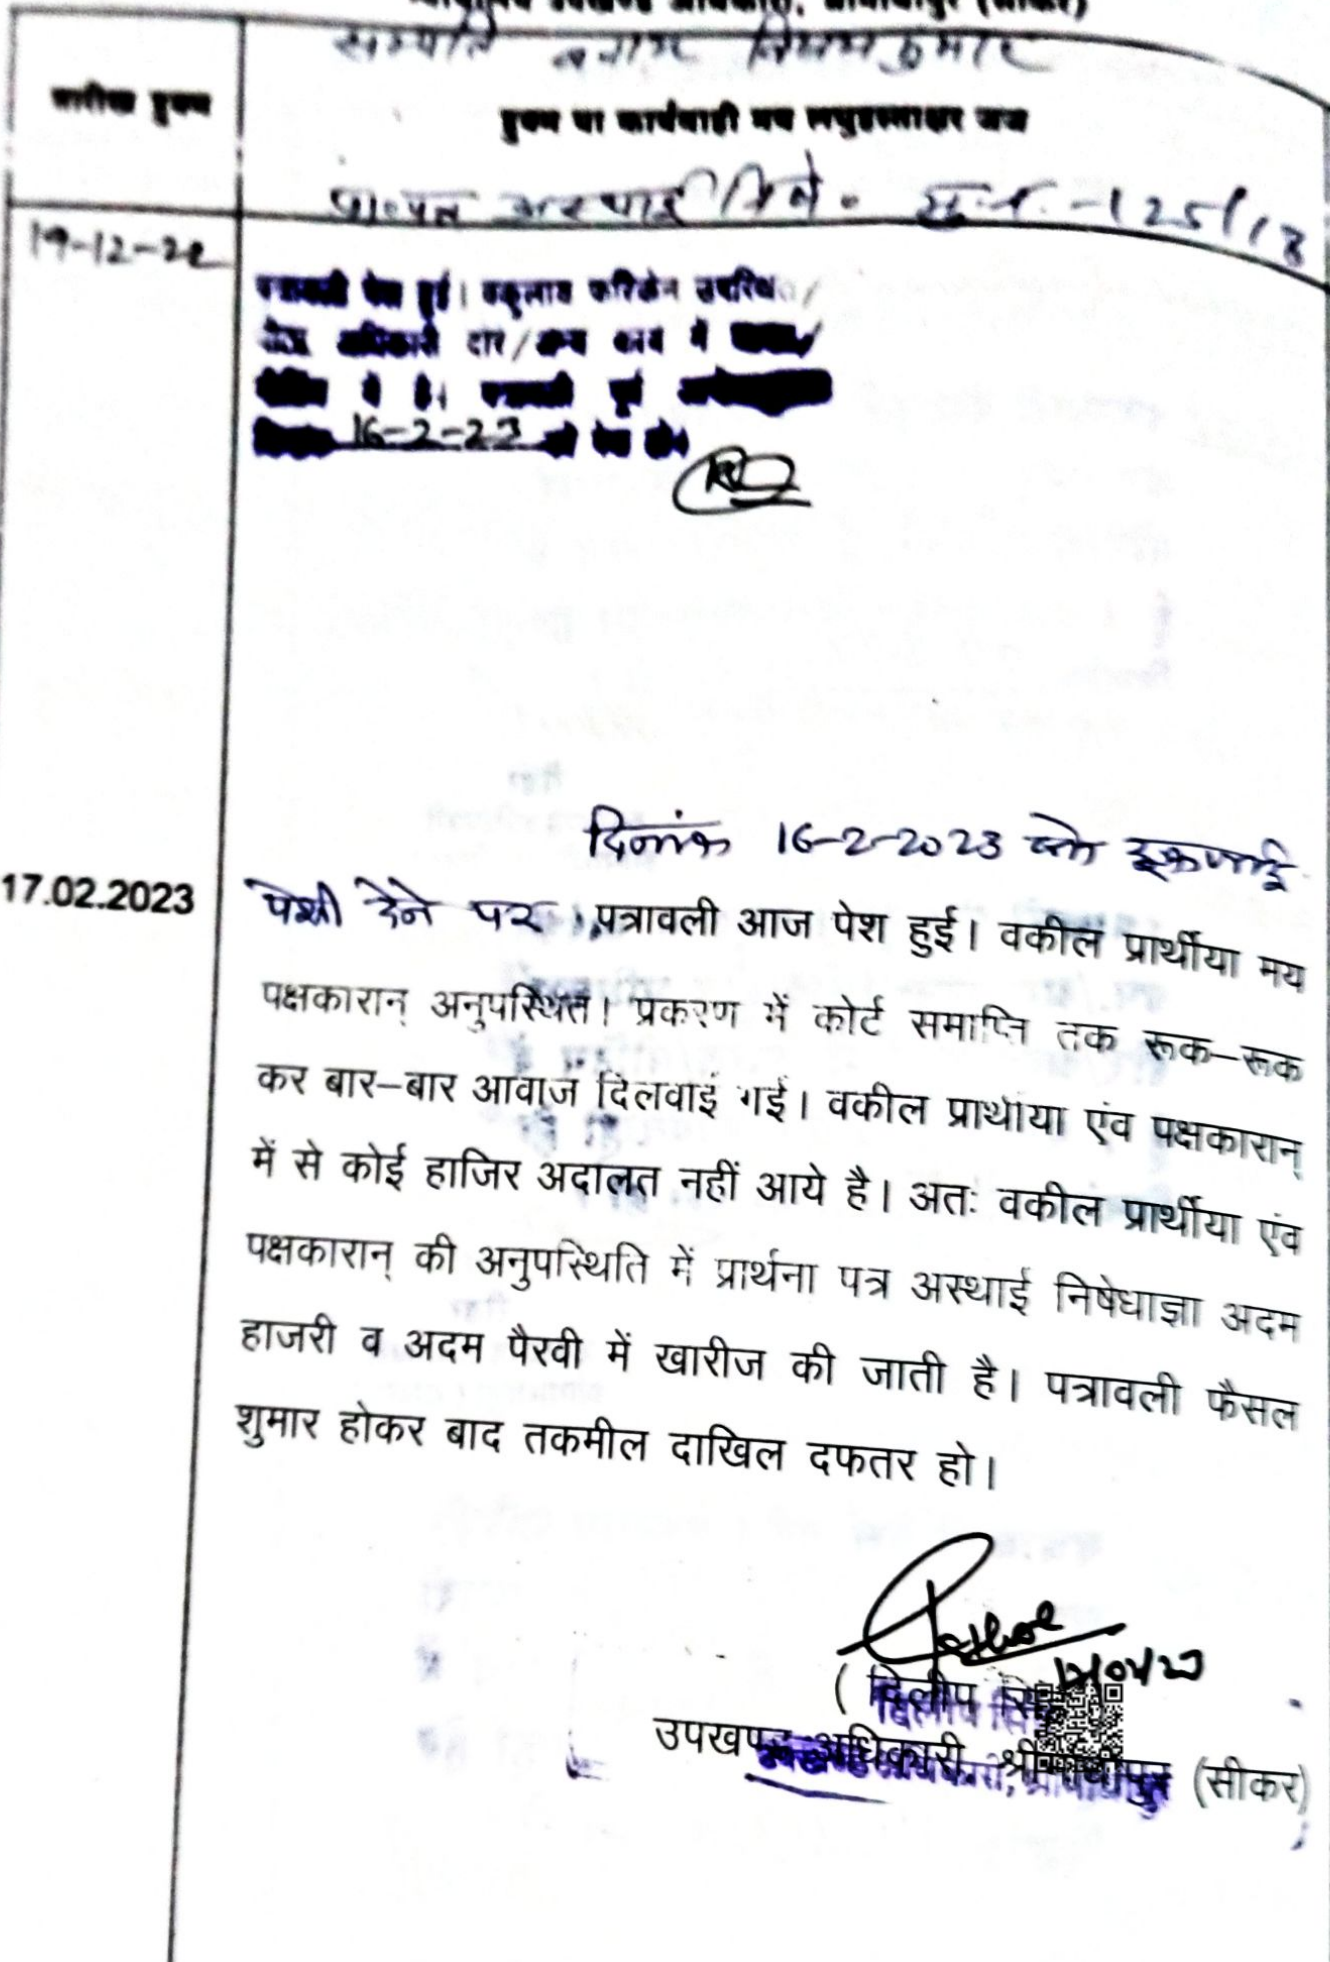 न्यायालय उपखण्ड अधिकारी, श्रीमाधोपुर (सीकर)
सम्पति बनाम
तारीख हुक्म
हुक्म या कार्यवाही मय लघुहस्ताक्षर जज
अस्थाई नि० मु.न. -125/18
19-12-22
पत्रावली पेश हुई। वकुलाय फरिकेन उपस्थित/
अधिकारी दौरे/अन्य कार्य में
में है। पत्रावली पूर्व
16-2-23 को पेश हो।
दिनांक 16-2-2023 को इकजाई
17.02.2023
पेशी देने पर पत्रावली आज पेश हुई। वकील प्रार्थीया मय
पक्षकारान् अनुपस्थित। प्रकरण में कोर्ट समाप्ति तक रूक–रूक
कर बार–बार आवाज दिलवाई गई। वकील प्रार्थीया एंव पक्षकारान्
में से कोई हाजिर अदालत नहीं आये है। अतः वकील प्रार्थीया एंव
पक्षकारान् की अनुपस्थिति में प्रार्थना पत्र अस्थाई निषेधाज्ञा अदम
हाजरी व अदम पैरवी में खारीज की जाती है। पत्रावली फैसल
शुमार होकर बाद तकमील दाखिल दफतर हो।
( दिलीप सिंह
उपखण्ड अधिकारी, श्रीमाधोपुर (सीकर)